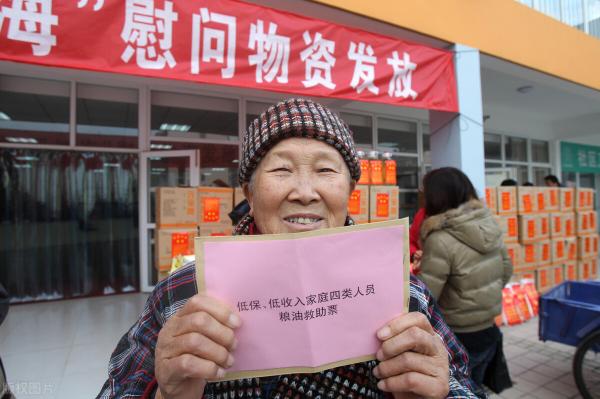 海”慰问物资发放
低保、低收入家庭四类人员
粮油救助票
版权图片